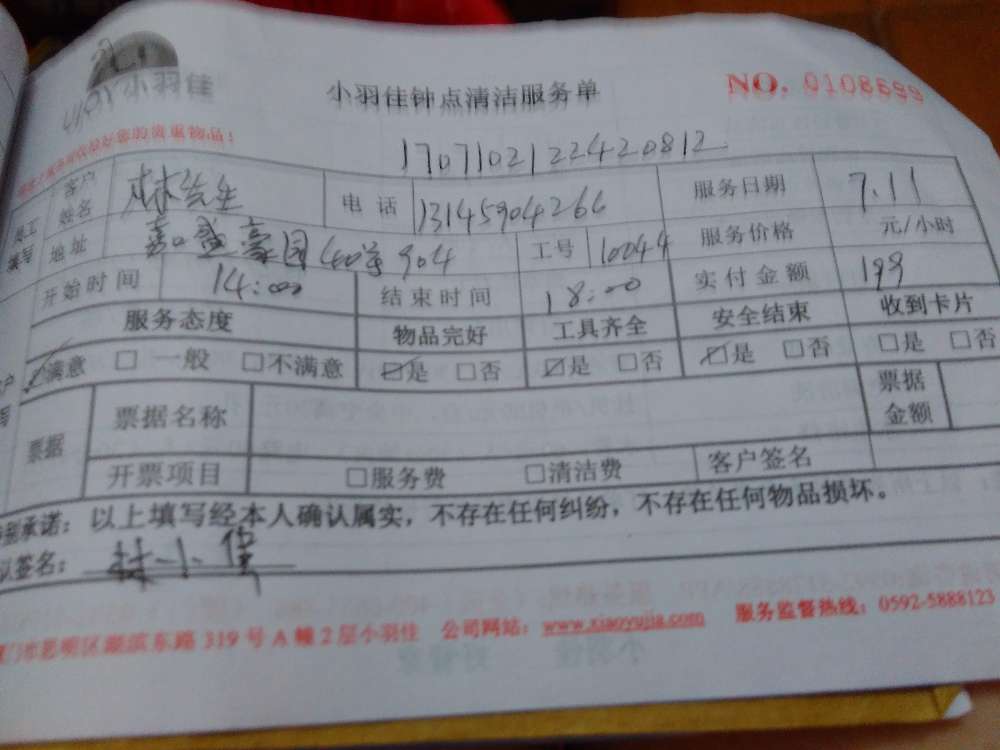 小羽佳
小羽佳钟点清洁服务单
NO. 0108599
您的贵重物品！
17071021224420812
客户姓名 林先生 电话 13145904266 服务日期 7.11
地址 嘉盛豪园 904 工号 10044 服务价格 元/小时
开始时间 14:00 结束时间 18:00 实付金额 199
服务态度 物品完好 工具齐全 安全结束 收到卡片
☑满意 □一般 □不满意 ☑是 □否 ☑是 □否 ☑是 □否 □是 □否
票据 票据名称 票据金额
开票项目 □服务费 □清洁费 客户签名
承诺：以上填写经本人确认属实，不存在任何纠纷，不存在任何物品损坏。
签名：林小
门市思明区湖滨东路 319 号 A 幢 2 层小羽佳 公司网站：www.xiaoyujia.com 服务监督热线：0592-5888123